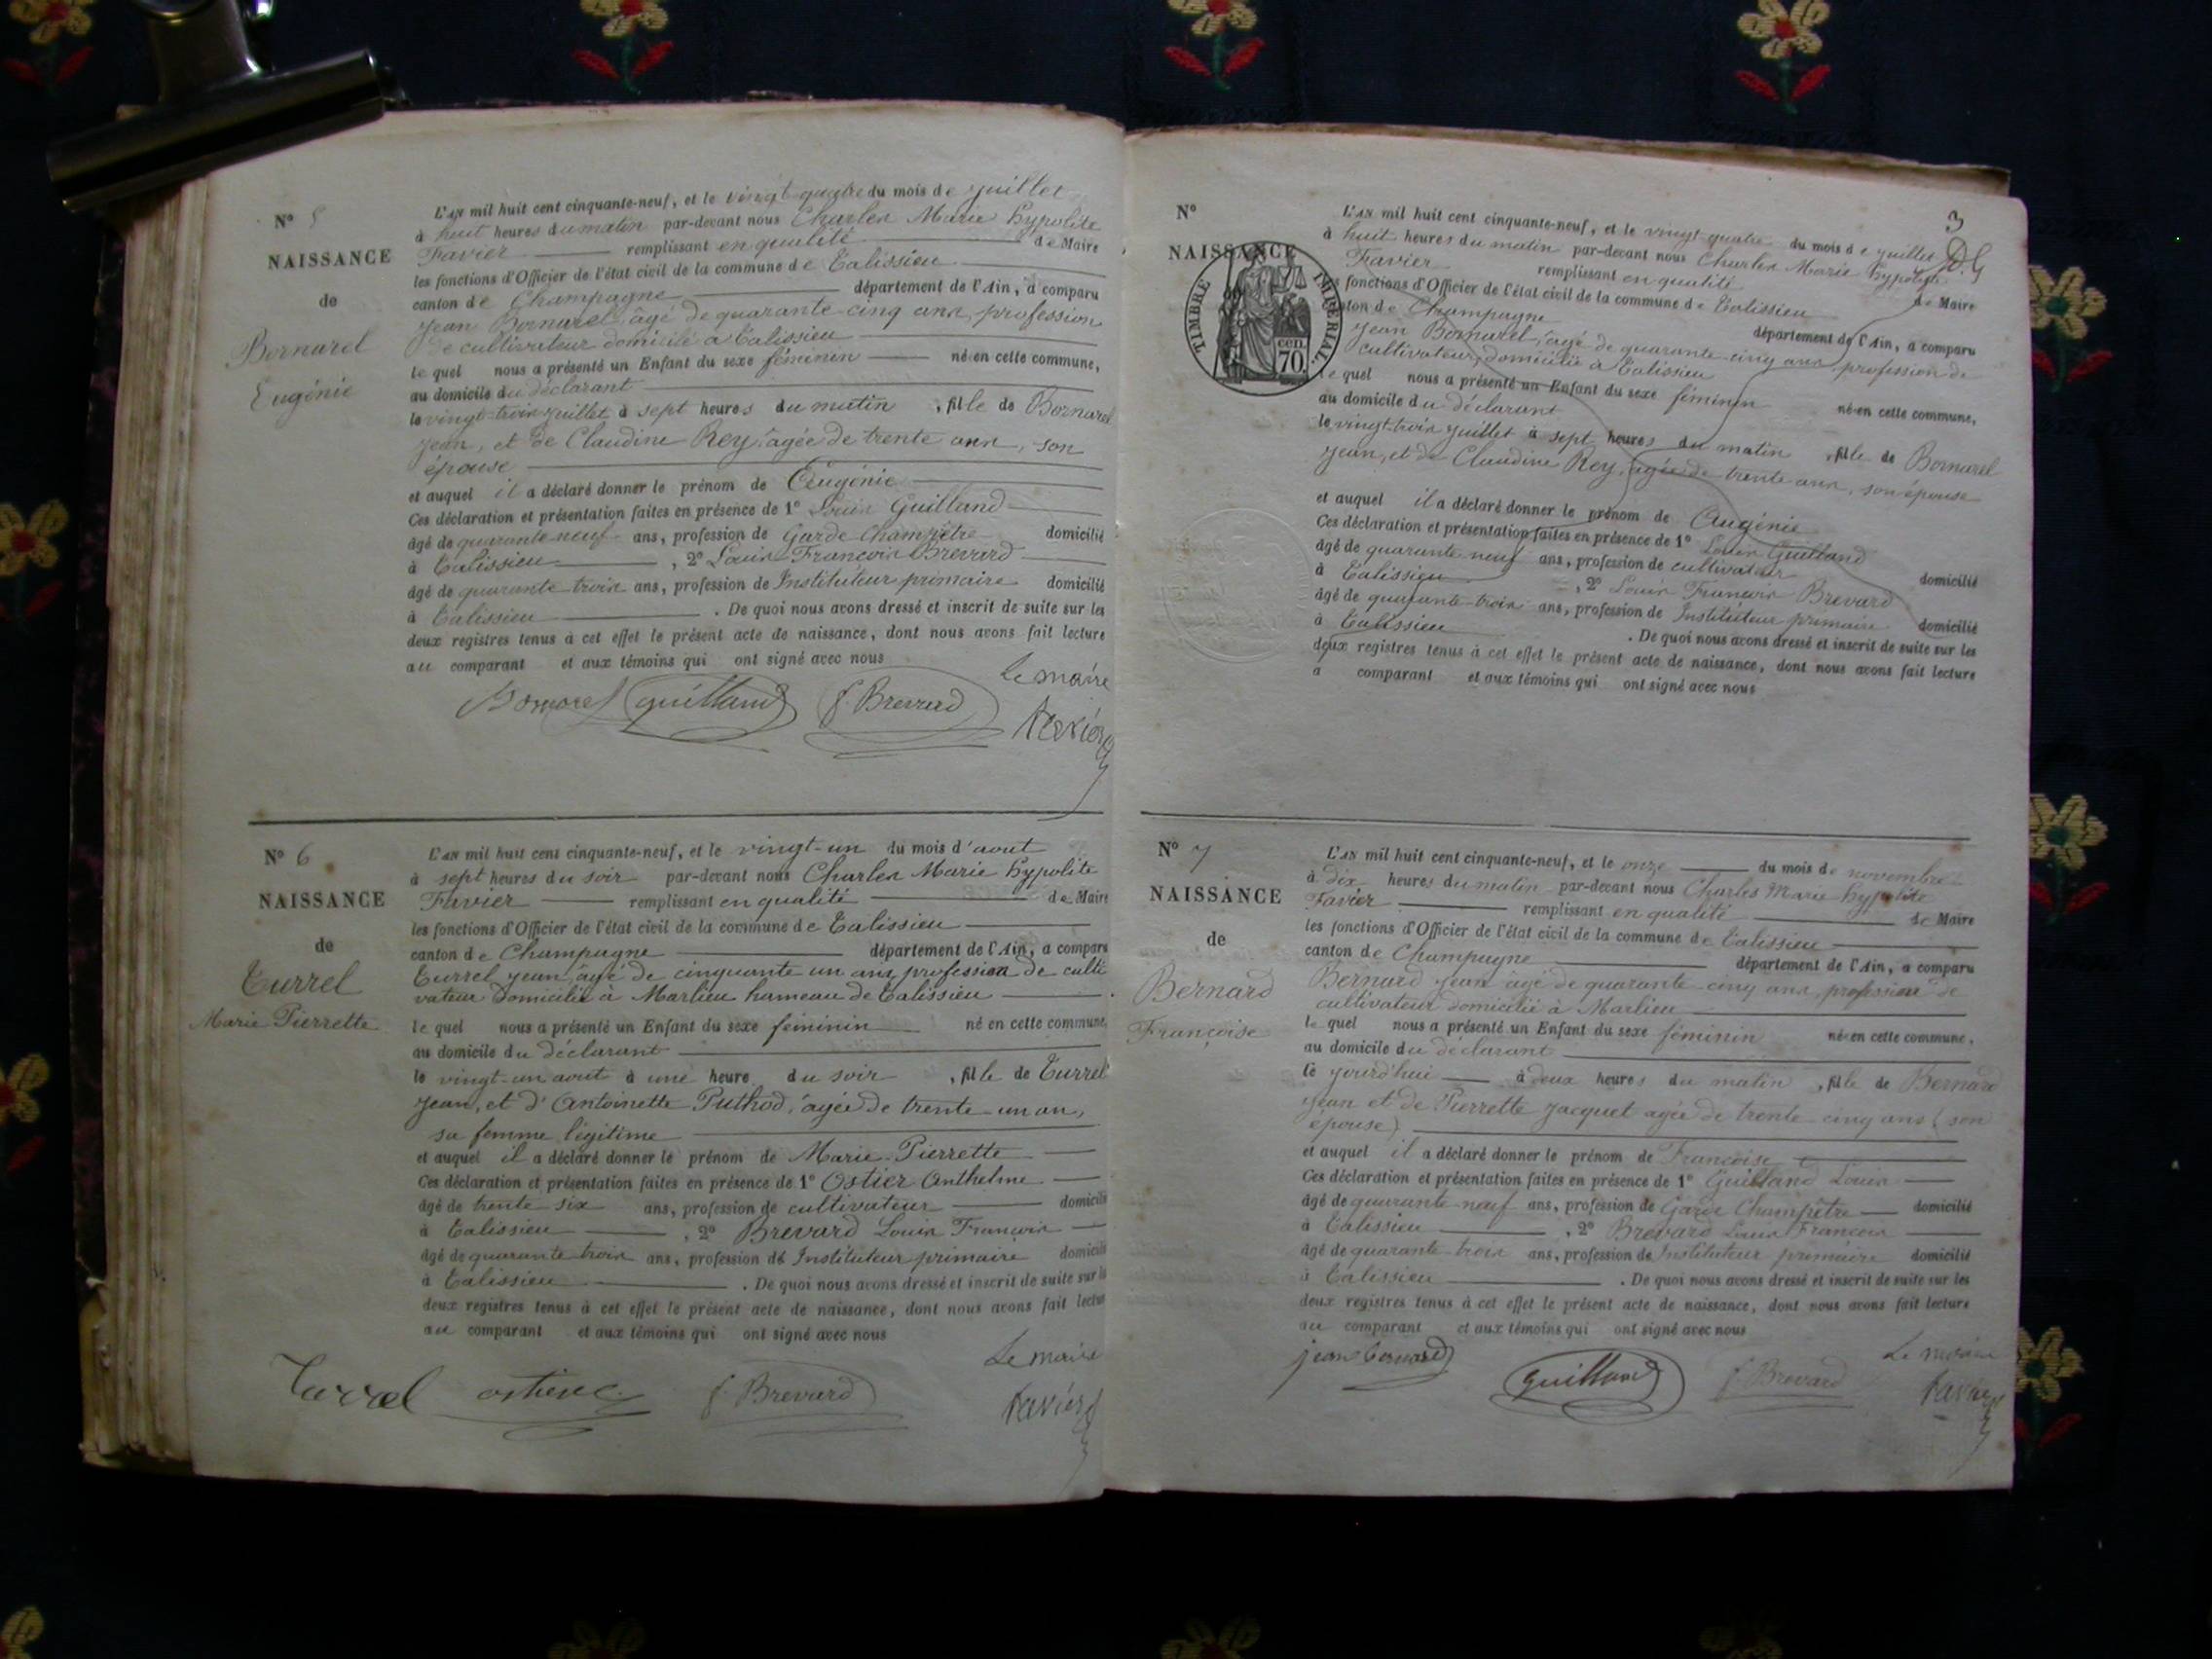 N° 5
NAISSANCE
de
Bornarel
Eugénie
L'AN mil huit cent cinquante-neuf, et le vingt-quatre du mois de juillet
à huit heures du matin par-devant nous Charles Marie Hypolite
Favier remplissant en qualité de Maire
les fonctions d'Officier de l'état civil de la commune de Talissieu
canton de Champagne département de l'Ain, a comparu
Jean Bornarel, âgé de quarante-cinq ans, profession
de cultivateur domicilié à Talissieu
le quel nous a présenté un Enfant du sexe féminin né en cette commune,
au domicile du déclarant
le vingt-trois juillet à sept heures du matin, fille de Bornarel
Jean, et de Claudine Rey, âgée de trente ans, son
épouse
et auquel il a déclaré donner le prénom de Eugénie
Ces déclaration et présentation faites en présence de 1° Louis Guilland
âgé de quarante neuf ans, profession de Garde Champêtre domicilié
à Talissieu, 2° Louis François Brevard
âgé de quarante trois ans, profession de Instituteur primaire domicilié
à Talissieu. De quoi nous avons dressé et inscrit de suite sur les
deux registres tenus à cet effet le présent acte de naissance, dont nous avons fait lecture
au comparant et aux témoins qui ont signé avec nous
Le maire
Bornarel guilland f. Brevard favier
N° 6
NAISSANCE
de
Turrel
Marie Pierrette
L'AN mil huit cent cinquante-neuf, et le vingt-un du mois d'aout
à sept heures du soir par-devant nous Charles Marie Hypolite
Favier remplissant en qualité de Maire
les fonctions d'Officier de l'état civil de la commune de Talissieu
canton de Champagne département de l'Ain, a comparu
Turrel Jean, âgé de cinquante un ans, profession de culti
vateur domicilié à Marlieu hameau de Talissieu
le quel nous a présenté un Enfant du sexe féminin né en cette commune,
au domicile du déclarant
le vingt-un aout à une heure du soir, fille de Turrel
Jean, et d'Antoinette Puthod, âgée de trente-un an,
sa femme légitime
et auquel il a déclaré donner le prénom de Marie-Pierrette
Ces déclaration et présentation faites en présence de 1° Ostier Anthelme
âgé de trente six ans, profession de cultivateur domicilié
à Talissieu, 2° Brevard Louis François
âgé de quarante trois ans, profession de Instituteur primaire domicilié
à Talissieu. De quoi nous avons dressé et inscrit de suite sur les
deux registres tenus à cet effet le présent acte de naissance, dont nous avons fait lecture
au comparant et aux témoins qui ont signé avec nous
Le maire
Turrel f. Brevard favier
3
N°
NAISSANCE
TIMBRE IMPERIAL.
cen. 70.
L'AN mil huit cent cinquante-neuf, et le vingt-quatre du mois de juillet
à huit heures du matin par-devant nous Charles Marie Hypolite
Favier remplissant en qualité de Maire
fonctions d'Officier de l'état civil de la commune de Talissieu
canton de Champagne département de l'Ain, a comparu
Jean Bornarel, âgé de quarante-cinq ans, profession de
cultivateur, domicilié à Talissieu
le quel nous a présenté un Enfant du sexe féminin né en cette commune,
au domicile du déclarant
le vingt-trois juillet à sept heures du matin, fille de Bornarel
Jean, et de Claudine Rey, âgée de trente ans, son épouse
et auquel il a déclaré donner le prénom de Eugénie
Ces déclaration et présentation faites en présence de 1° Louis Guilland
âgé de quarante-neuf ans, profession de cultivateur domicilié
à Talissieu, 2° Louis François Brevard
âgé de quarante-trois ans, profession de Instituteur primaire domicilié
à Talissieu. De quoi nous avons dressé et inscrit de suite sur les
deux registres tenus à cet effet le présent acte de naissance, dont nous avons fait lecture
a comparant et aux témoins qui ont signé avec nous
N° 7
NAISSANCE
de
Bernard
Françoise
L'AN mil huit cent cinquante-neuf, et le onze du mois de novembre
à dix heures du matin par-devant nous Charles Marie hypolite
Favier remplissant en qualité de Maire
les fonctions d'Officier de l'état civil de la commune de Talissieu
canton de Champagne département de l'Ain, a comparu
Bernard Jean âgé de quarante-cinq ans, profession de
cultivateur domicilié à Marlieu
le quel nous a présenté un Enfant du sexe féminin né en cette commune,
au domicile du déclarant
le jourd'hui à deux heures du matin, fille de Bernard
Jean et de Pierrette Jacquet agée de trente-cinq ans (son
épouse)
et auquel il a déclaré donner le prénom de Françoise
Ces déclaration et présentation faites en présence de 1° Guilland Louis
âgé de quarante-neuf ans, profession de Garde Champêtre domicilié
à Talissieu, 2° Brevard Louis François
âgé de quarante-trois ans, profession de Instituteur primaire domicilié
à Talissieu. De quoi nous avons dressé et inscrit de suite sur les
deux registres tenus à cet effet le présent acte de naissance, dont nous avons fait lecture
au comparant et aux témoins qui ont signé avec nous
Le maire
jean bernard guilland f. Brevard favier